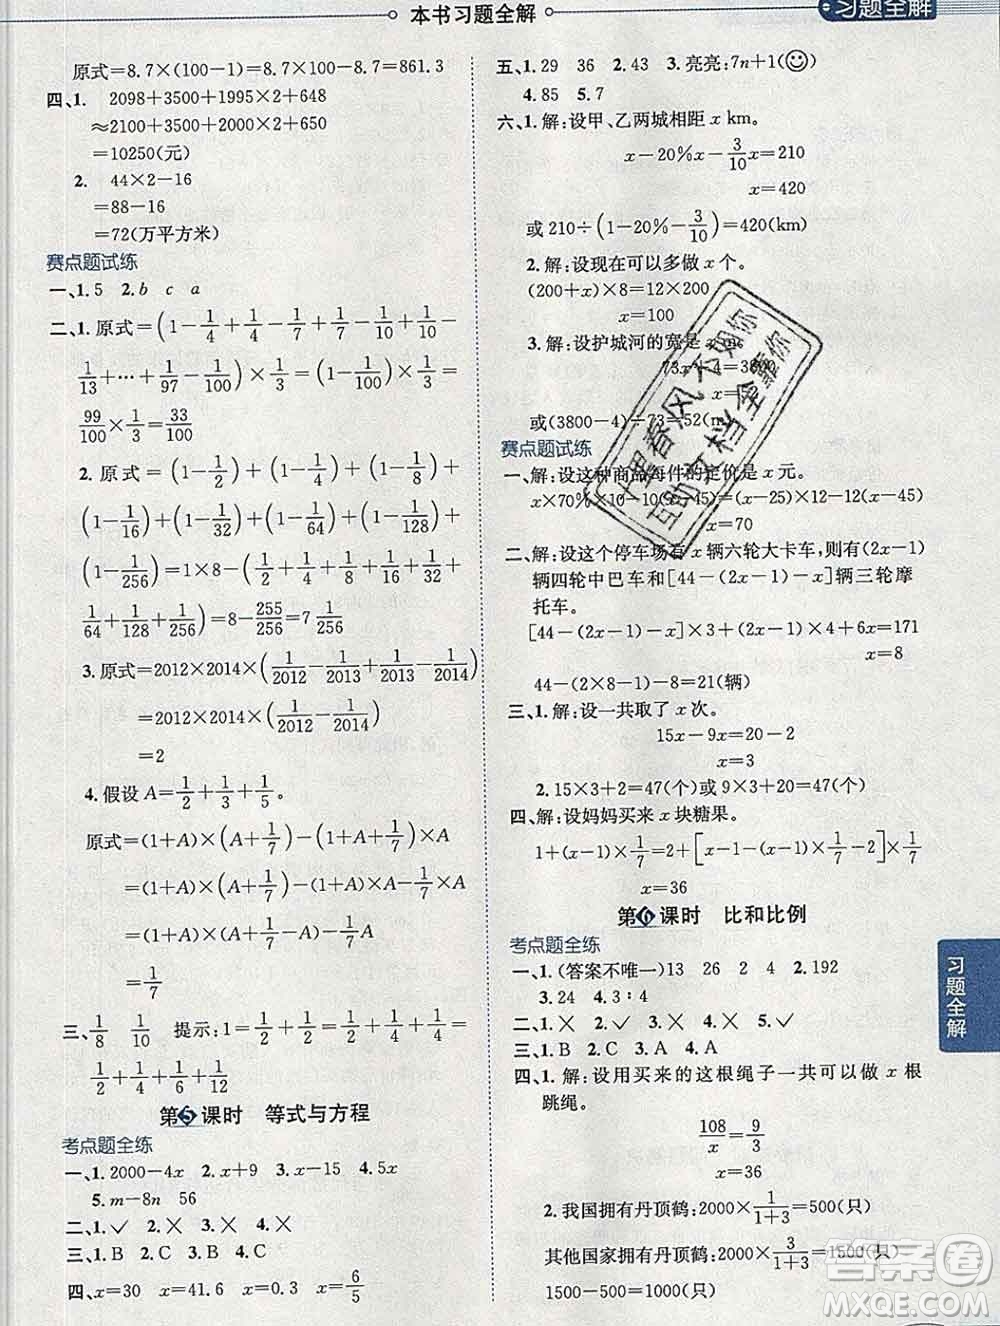 本书习题全解
习题全解
原式=8.7×(100-1)=8.7×100-8.7=861.3
四、1. 2098+3500+1995×2+648
≈2100+3500+2000×2+650
=10250(元)
2. 44×2-16
=88-16
=72(万平方米)
赛点题试练
一、1.5 2.b c a
二、1.原式=(1-1/4+1/4-1/7+1/7-1/10+1/10-
1/13+…+1/97-1/100)×1/3=(1-1/100)×1/3=
99/100×1/3=33/100
2.原式=(1-1/2)+(1-1/4)+(1-1/8)+
(1-1/16)+(1-1/32)+(1-1/64)+(1-1/128)+
(1-1/256)=1×8-(1/2+1/4+1/8+1/16+1/32+
1/64+1/128+1/256)=8-255/256=7 1/256
3.原式=2012×2014×(1/2012-1/2013+1/2013-1/2014)
=2012×2014×(1/2012-1/2014)
=2
4.假设A=1/2+1/3+1/5。
原式=(1+A)×(A+1/7)-(1+A+1/7)×A
=(1+A)×(A+1/7)-(1+A)×A-1/7×A
=(1+A)×1/7-1/7A
=1/7
三、1/8 1/10 提示:1=1/2+1/2=1/2+1/4+1/4=
1/2+1/4+1/6+1/12
第5课时 等式与方程
考点题全练
一、1.2000-4x 2.x+9 3.x-15 4.5x
5.m-8n 56
二、1.✓ 2.× 3.× 4.×
三、1.B 2.C 3.B 4.C
四、x=30 x=41.6 x=0.3 x=6/5
五、1.29 36 2.43 3.亮亮:7n+1(☺)
4.85 5.7
六、1.解:设甲、乙两城相距 x km。
x-20%x-3/10x=210
x=420
或 210÷(1-20%-3/10)=420(km)
2.解:设现在可以多做 x 个。
(200+x)×8=12×200
x=100
3.解:设护城河的宽是
73x+4=
x=
或(3800-4)÷73=52(m
赛点题试练
一、解:设这种商品每件的定价是 x 元。
x×70%×10-10(x-45)=(x-25)×12-12(x-45)
x=70
二、解:设这个停车场有 x 辆六轮大卡车，则有(2x-1)
辆四轮中巴车和[44-(2x-1)-x]辆三轮摩
托车。
[44-(2x-1)-x]×3+(2x-1)×4+6x=171
x=8
44-(2×8-1)-8=21(辆)
三、1.解:设一共取了 x 次。
15x-9x=20-2
x=3
2.15×3+2=47(个)或 9×3+20=47(个)
四、解:设妈妈买来 x 块糖果。
1+(x-1)×1/7=2+[x-1-(x-1)×1/7-2]×1/7
x=36
第6课时 比和比例
考点题全练
一、1.(答案不唯一)13 26 2 4 2.192
3.24 4.3∶4
二、1.× 2.✓ 3.× 4.× 5.✓
三、1.B 2.C 3.A 4.A
四、1.解:设用买来的这根绳子一共可以做 x 根
跳绳。
108/x=9/3
x=36
2.我国拥有丹顶鹤:2000×1/(1+3)=500(只)
其他国家拥有丹顶鹤:2000×3/(1+3)=1500(只)
1500-500=1000(只)
习题全解
十里春风不如你
互助文档全靠你
答案圈
MXQE.COM